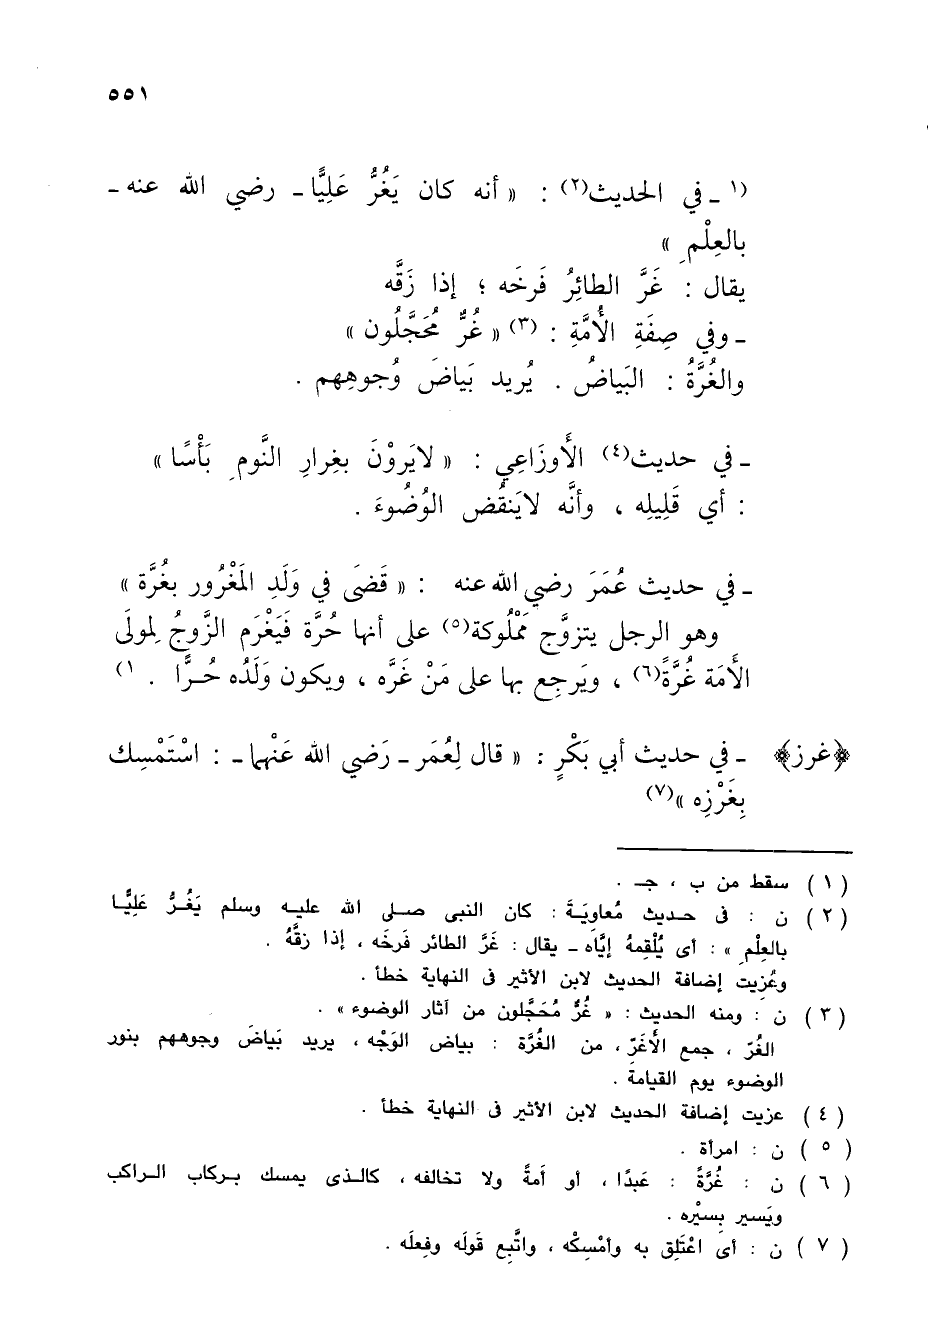 ٥٥١
(١ ـ في الحديث(٢) : « أنه كان يَغُرُّ عَلِيًّا ـ رضي الله عنه ـ
بالعِلْمِ »
يقال : غَرَّ الطائِرُ فَرخَه ؛ إذا زَقَّه
ـ وفي صِفَةِ الأُمَّةِ : (٣) « غُرٌّ مُحَجَّلُون »
والغُرَّةُ : البَياضُ . يُريد بَياضَ وُجوهِهم .
ـ في حديث(٤) الأَوزَاعِي : « لايَروْنَ بغِرارِ النَّومِ بَأْسًا »
: أي قَلِيلِه ، وأنَّه لايَنقُض الوُضُوءَ .
ـ في حديث عُمَرَ رضي الله عنه : « قَضَى في وَلَدِ المَغْرُور بغُرَّة »
وهو الرجل يتزوَّج مَمْلُوكة(٥) على أنها حُرَّة فَيَغْرَم الزَّوجُ لِمولَى
الأَمَة غُرَّةً(٦) ، ويَرجِع بها على مَنْ غَرَّه ، ويكون وَلَدُه حُـرًّا . ١)
﴿غرز﴾ ـ في حديث أبي بَكْرٍ : « قال لِعُمَر ـ رَضي الله عَنْهما ـ : اسْتَمْسِك
بِغَرْزِه »(٧)
(١) سقط من ب ، جـ .
(٢) ن : فى حديث مُعاوِيَةَ : كان النبى صلى الله عليه وسلم يَغُـرُّ عَلِيًّـا
بالعِلْمِ » : أى يُلْقِمهُ إيَّاه ـ يقال : غَرَّ الطائر فَرخَه ، إذا زقَّهُ .
وعُزِيت إضافة الحديث لابن الأثير فى النهاية خطأ .
(٣) ن : ومنه الحديث : « غُرٌّ مُحَجَّلون من آثار الوضوء » .
الغُرّ ، جمع الأَغَرّ ، من الغُرَّة : بياض الوَجْه ، يريد بَياضَ وجوههم بنور
الوضوء يوم القيامة .
(٤) عزيت إضافة الحديث لابن الأثير فى النهاية خطأ .
(٥) ن : امرأة .
(٦) ن : غُرَّةً : عَبدًا ، أو أمةً ولا تخالفه ، كالـذى يمسك بـركاب الراكب
ويَسير بِسيْره .
(٧) ن : أى اعْتَلِق به وأمْسِكْه ، واتَّبِع قَولَه وفِعلَه .